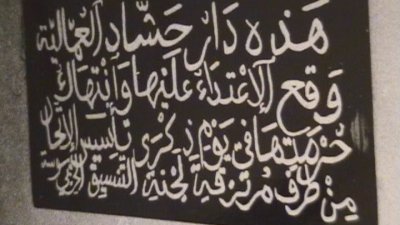 هَذِهِ دَارُ حَشَّادِ الْعُمَّالِيَّة
وَقَعَ الْاِعْتِدَاءُ عَلَيْهَا وَانْتِهَاكُ
حُرْمَتِهَا فِي يَوْمِ ذِكْرَى تَأْسِيسِ الْإِتِّحَادِ
مِنْ طَرَفِ مُرْتَزِقَةِ لَجْنَةِ التَّنْسِيقِ الْحِزْبِي